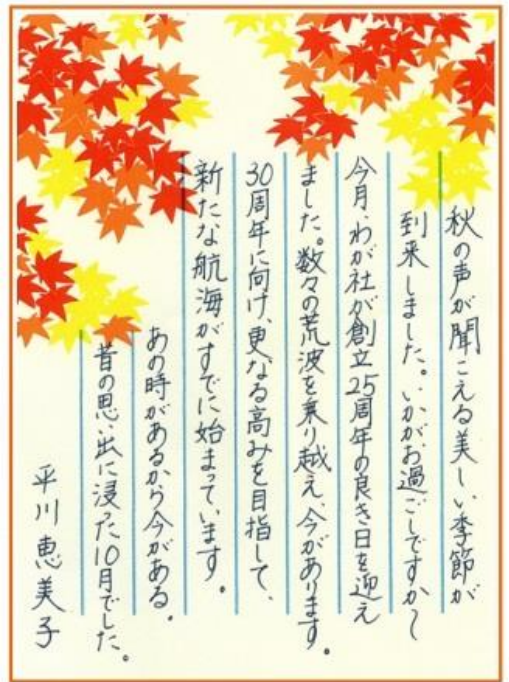 秋の声が聞こえる美しい季節が
到来しました。いかがお過ごしですか〜
今月、わが社が創立25周年の良き日を迎え
ました。数々の荒波を乗り越え、今があります。
30周年に向け、更なる高みを目指して、
新たな航海がすでに始まっています。
あの時があるから今がある。
昔の思い出に浸った10月でした。
平川恵美子